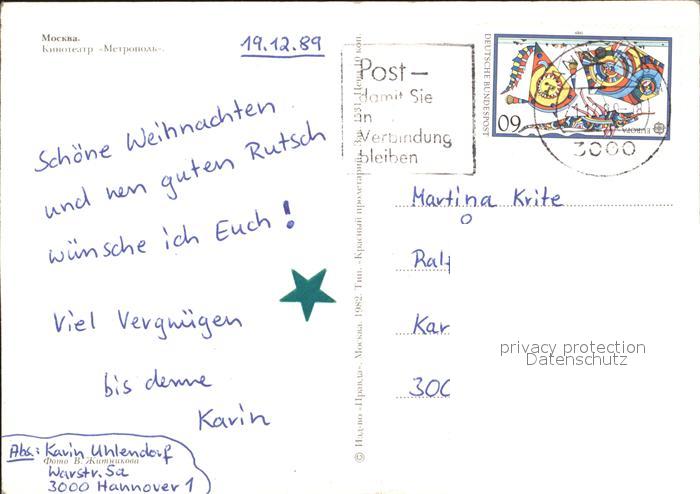 Москва.
Кинотеатр «Метрополь».
19.12.89
Schöne Weihnachten
und nen guten Rutsch
wünsche ich Euch!
Viel Vergnügen
bis denne
Karin
Abs.: Karin Uhlendorf
Фото В. Житникова
Warstr. 5a
3000 Hannover 1
© Изд-во «Правда». Москва. 1982. Тип. «Красный пролетарий». Цена 10 коп.
Post –
damit Sie
in
Verbindung
bleiben
DEUTSCHE BUNDESPOST
60
EUROPA
3000
Martina Krite
Ralf
Kar
300
privacy protection
Datenschutz